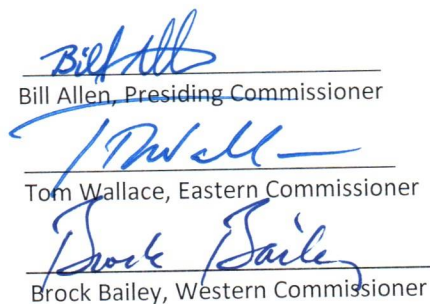 Bill Allen
Bill Allen, Presiding Commissioner
T Wallace
Tom Wallace, Eastern Commissioner
Brock Bailey
Brock Bailey, Western Commissioner